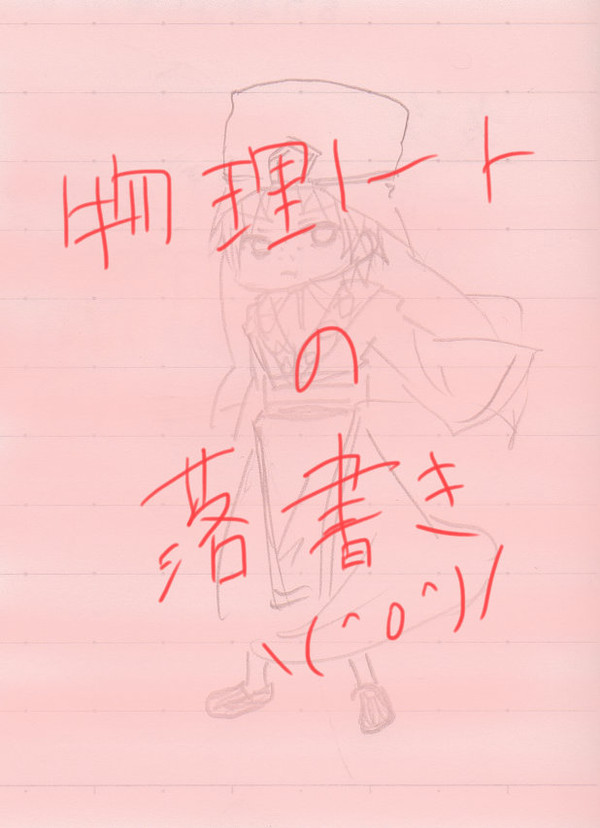 物理ノート
の
落書き
\(^o^)/